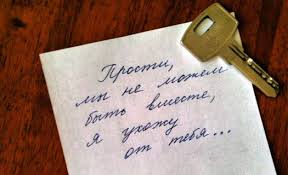 Прости,
мы не можем
быть вместе,
я ухожу
от тебя...